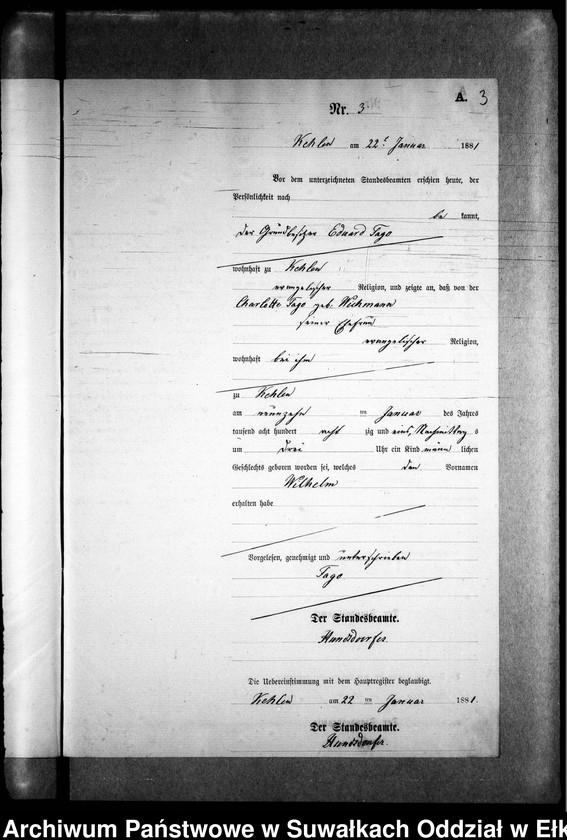 A. 3
Nr. 3
Kehlen am 22t Januar 1881
Vor dem unterzeichneten Standesbeamten erschien heute, der
Persönlichkeit nach
be kannt,
der Grundbesitzer Eduard Tago
wohnhaft zu Kehlen
evangelischer Religion, und zeigte an, daß von der
Charlotte Tago geb. Wichmann
seiner Ehefrau
evangelischer Religion,
wohnhaft bei ihm
zu Kehlen
am neunzehn ten Januar des Jahres
tausend acht hundert acht zig und eins, Nachmittag s
um drei Uhr ein Kind männ lichen
Geschlechts geboren worden sei, welches den Vornamen
Wilhelm
erhalten habe
Vorgelesen, genehmigt und unterschrieben
Tago
Der Standesbeamte.
Hundsdorfer.
Die Uebereinstimmung mit dem Hauptregister beglaubigt.
Kehlen am 22 ten Januar 1881.
Der Standesbeamte.
Hundsdorfer.
Archiwum Państwowe w Suwałkach Oddział w Ełk